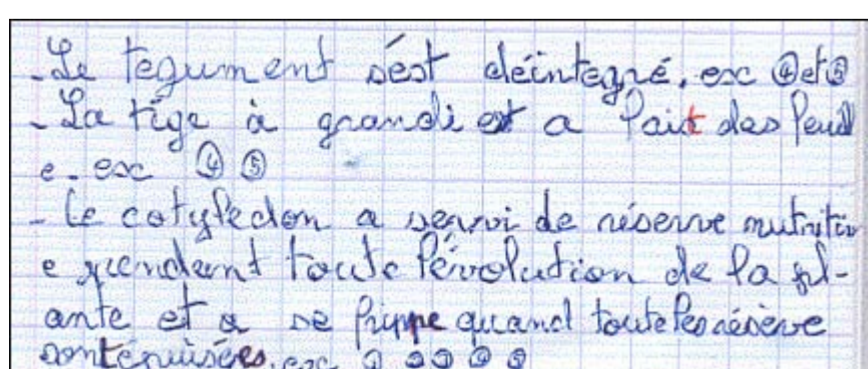 - Le tegument sést déintegré. ex ④ et ⑤
- La tige à grandi et a fait des feuill
e. ex ④ ⑤
- Le cotyledon a servi de réserve nutritiv
e pendant toute l'évolution de la pl-
ante et a se frippe quand toute les résève
sont épuisées. ex